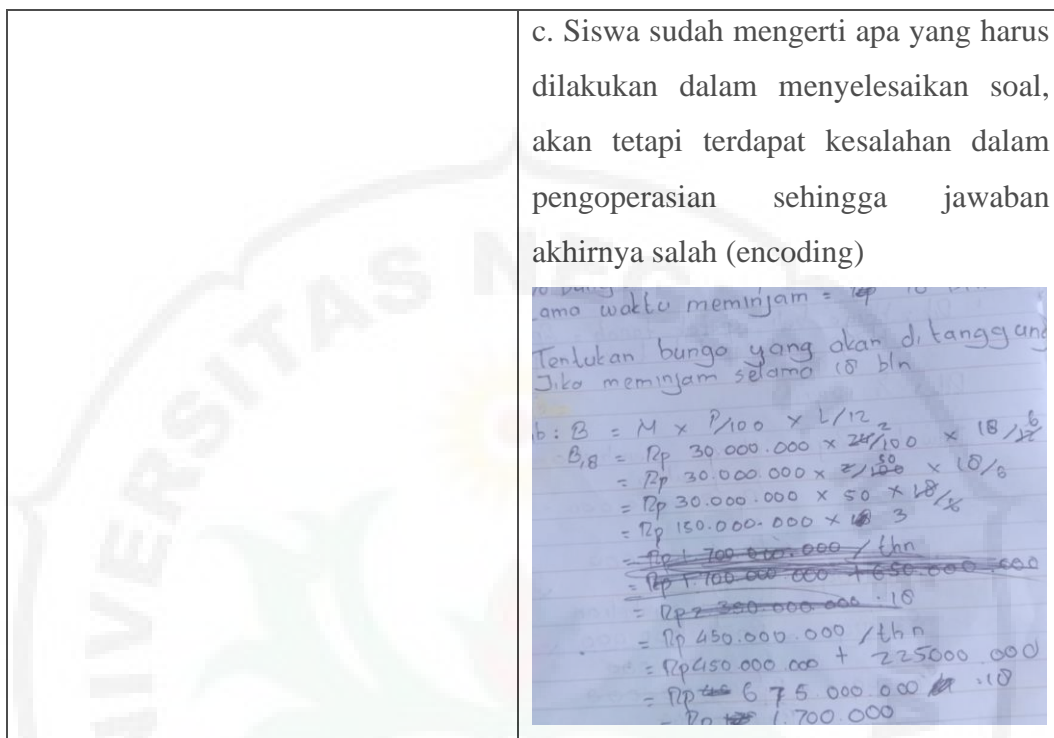 c. Siswa sudah mengerti apa yang harus
dilakukan dalam menyelesaikan soal,
akan tetapi terdapat kesalahan dalam
pengoperasian sehingga jawaban
akhirnya salah (encoding)
waktu meminjam =
Tentukan bunga yang akan ditanggung
Jika meminjam selama 18 bln
B = M × P/100 × L/12
B18 = Rp 30.000.000 × 24/100 × 18/12
= Rp 30.000.000 × 2/100 50 × 18/6
= Rp 30.000.000 × 50 × 18/6
= Rp 150.000.000 × 3
= Rp 1.700.000.000 / thn
= Rp 1.700.000.000 + 650.000.000
= Rp 2.350.000.000 . 18
= Rp 450.000.000 / thn
= Rp 450.000.000 + 225000.000
= Rp 675.000.000 .18
= Rp 1.700.000
UNIVERSITAS NEG